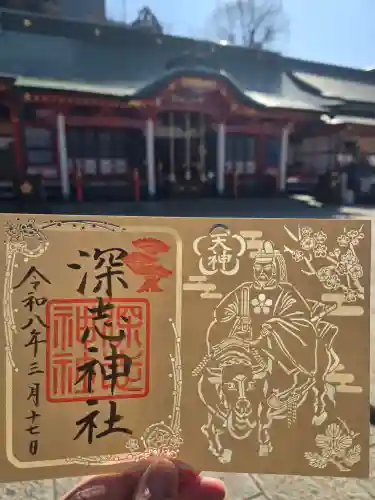 深志神社
深志
神社
令和八年三月十七日
天神